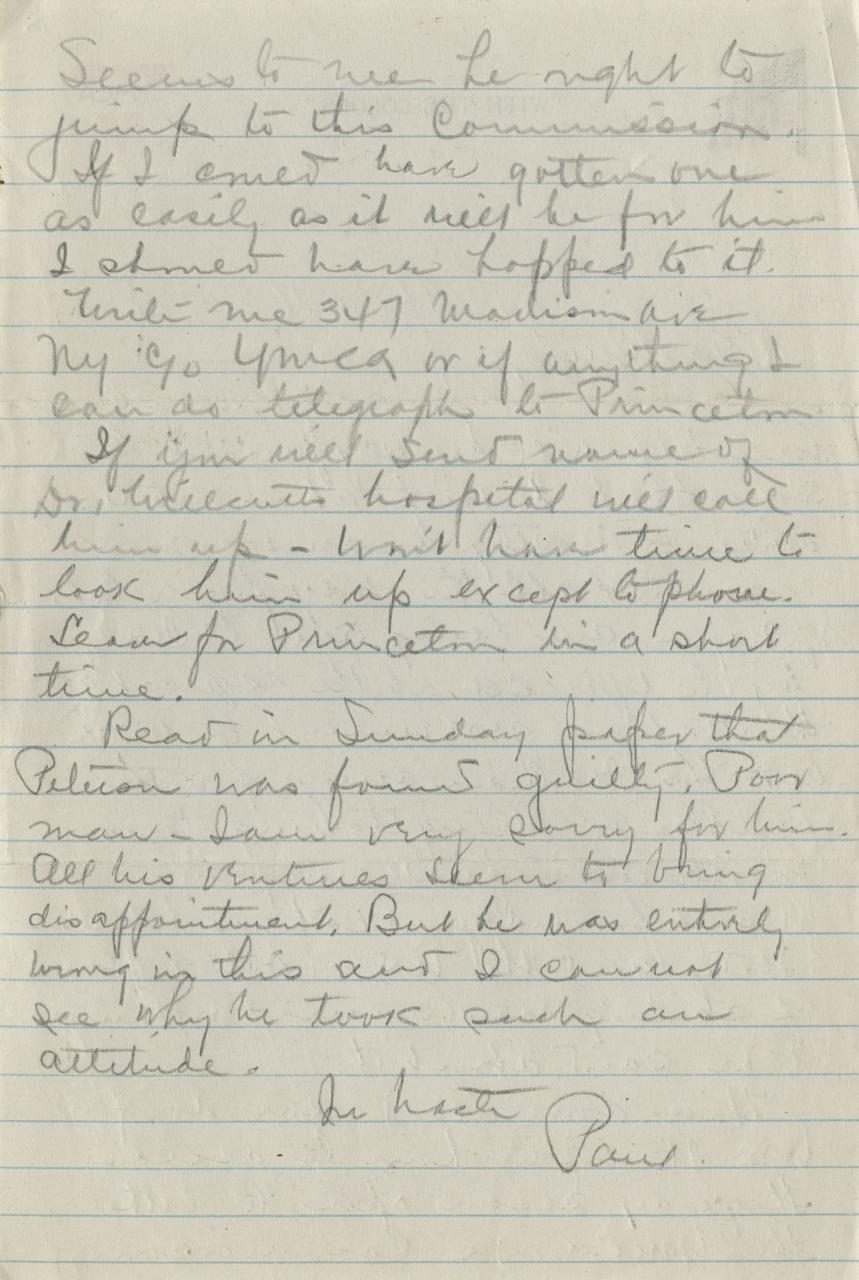 Seems to me he ought to
jump to this Commission.
If I could have gotten one
as easily as it will be for him
I should have hopped to it.
Write me 347 Madison ave
NY c/o YMCA or if anything I
can do telegraph to Princeton
If you will send name of
Dr. Willcutts hospital will call
him up - Won't have time to
look him up except to phone.
Leave for Princeton in a short
time.
Read in Sunday paper that
Peterson was found guilty. Poor
man - I am very sorry for him.
All his ventures seem to bring
disappointment. But he was entirely
wrong in this and I cannot
see why he took such an
attitude.
In haste
Paul.